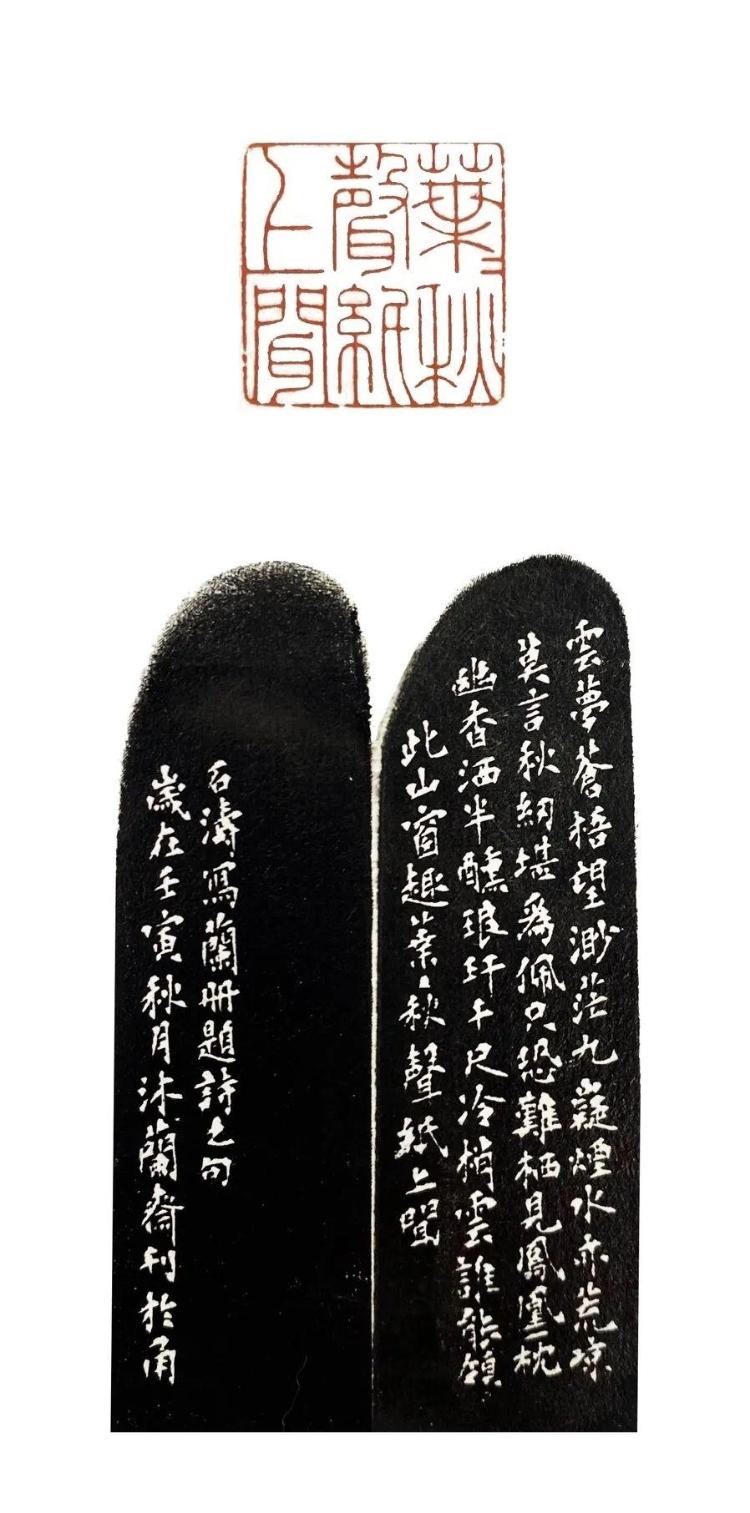 葉〻秋
聲紙
上聞
雲夢蒼梧望渺茫九嶷煙水亦荒涼
莫言秋紉堪爲佩只恐難栖見鳳凰一枕
幽香酒半醺琅玕千尺冷梢雲誰能領
此山窗趣葉〻秋聲紙上聞
石濤寫蘭册題詩之句
歲在壬寅秋月沐蘭齋刊於甬